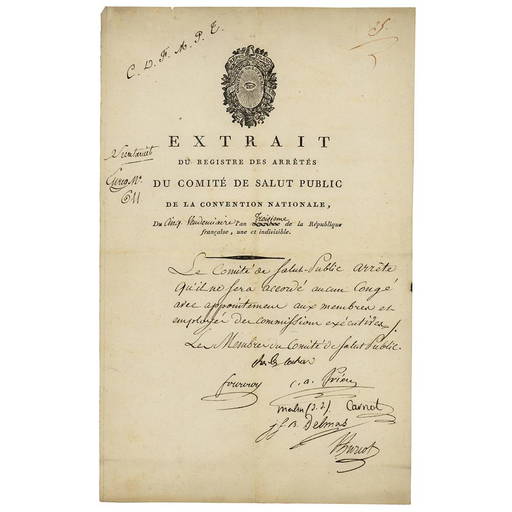 C. D. F. M. P. E.
EXTRAIT
DU REGISTRE DES ARRÊTÉS
DU COMITÉ DE SALUT PUBLIC
DE LA CONVENTION NATIONALE,
Secrétariat
Enreg. N.º
611
Du Cinq Vendemiaire l'an Troisieme de la République
française, une et indivisible.
Le Comité de Salut-Public arrête
qu'il ne sera acordé aucun Congé
avec appointement aux membres et
employés des commissions exécutives.
Les Membres du Comité de Salut Public.
fourcroy C. A. Prieur
merlin (d. d.) Carnot
Delmas
Thuriot